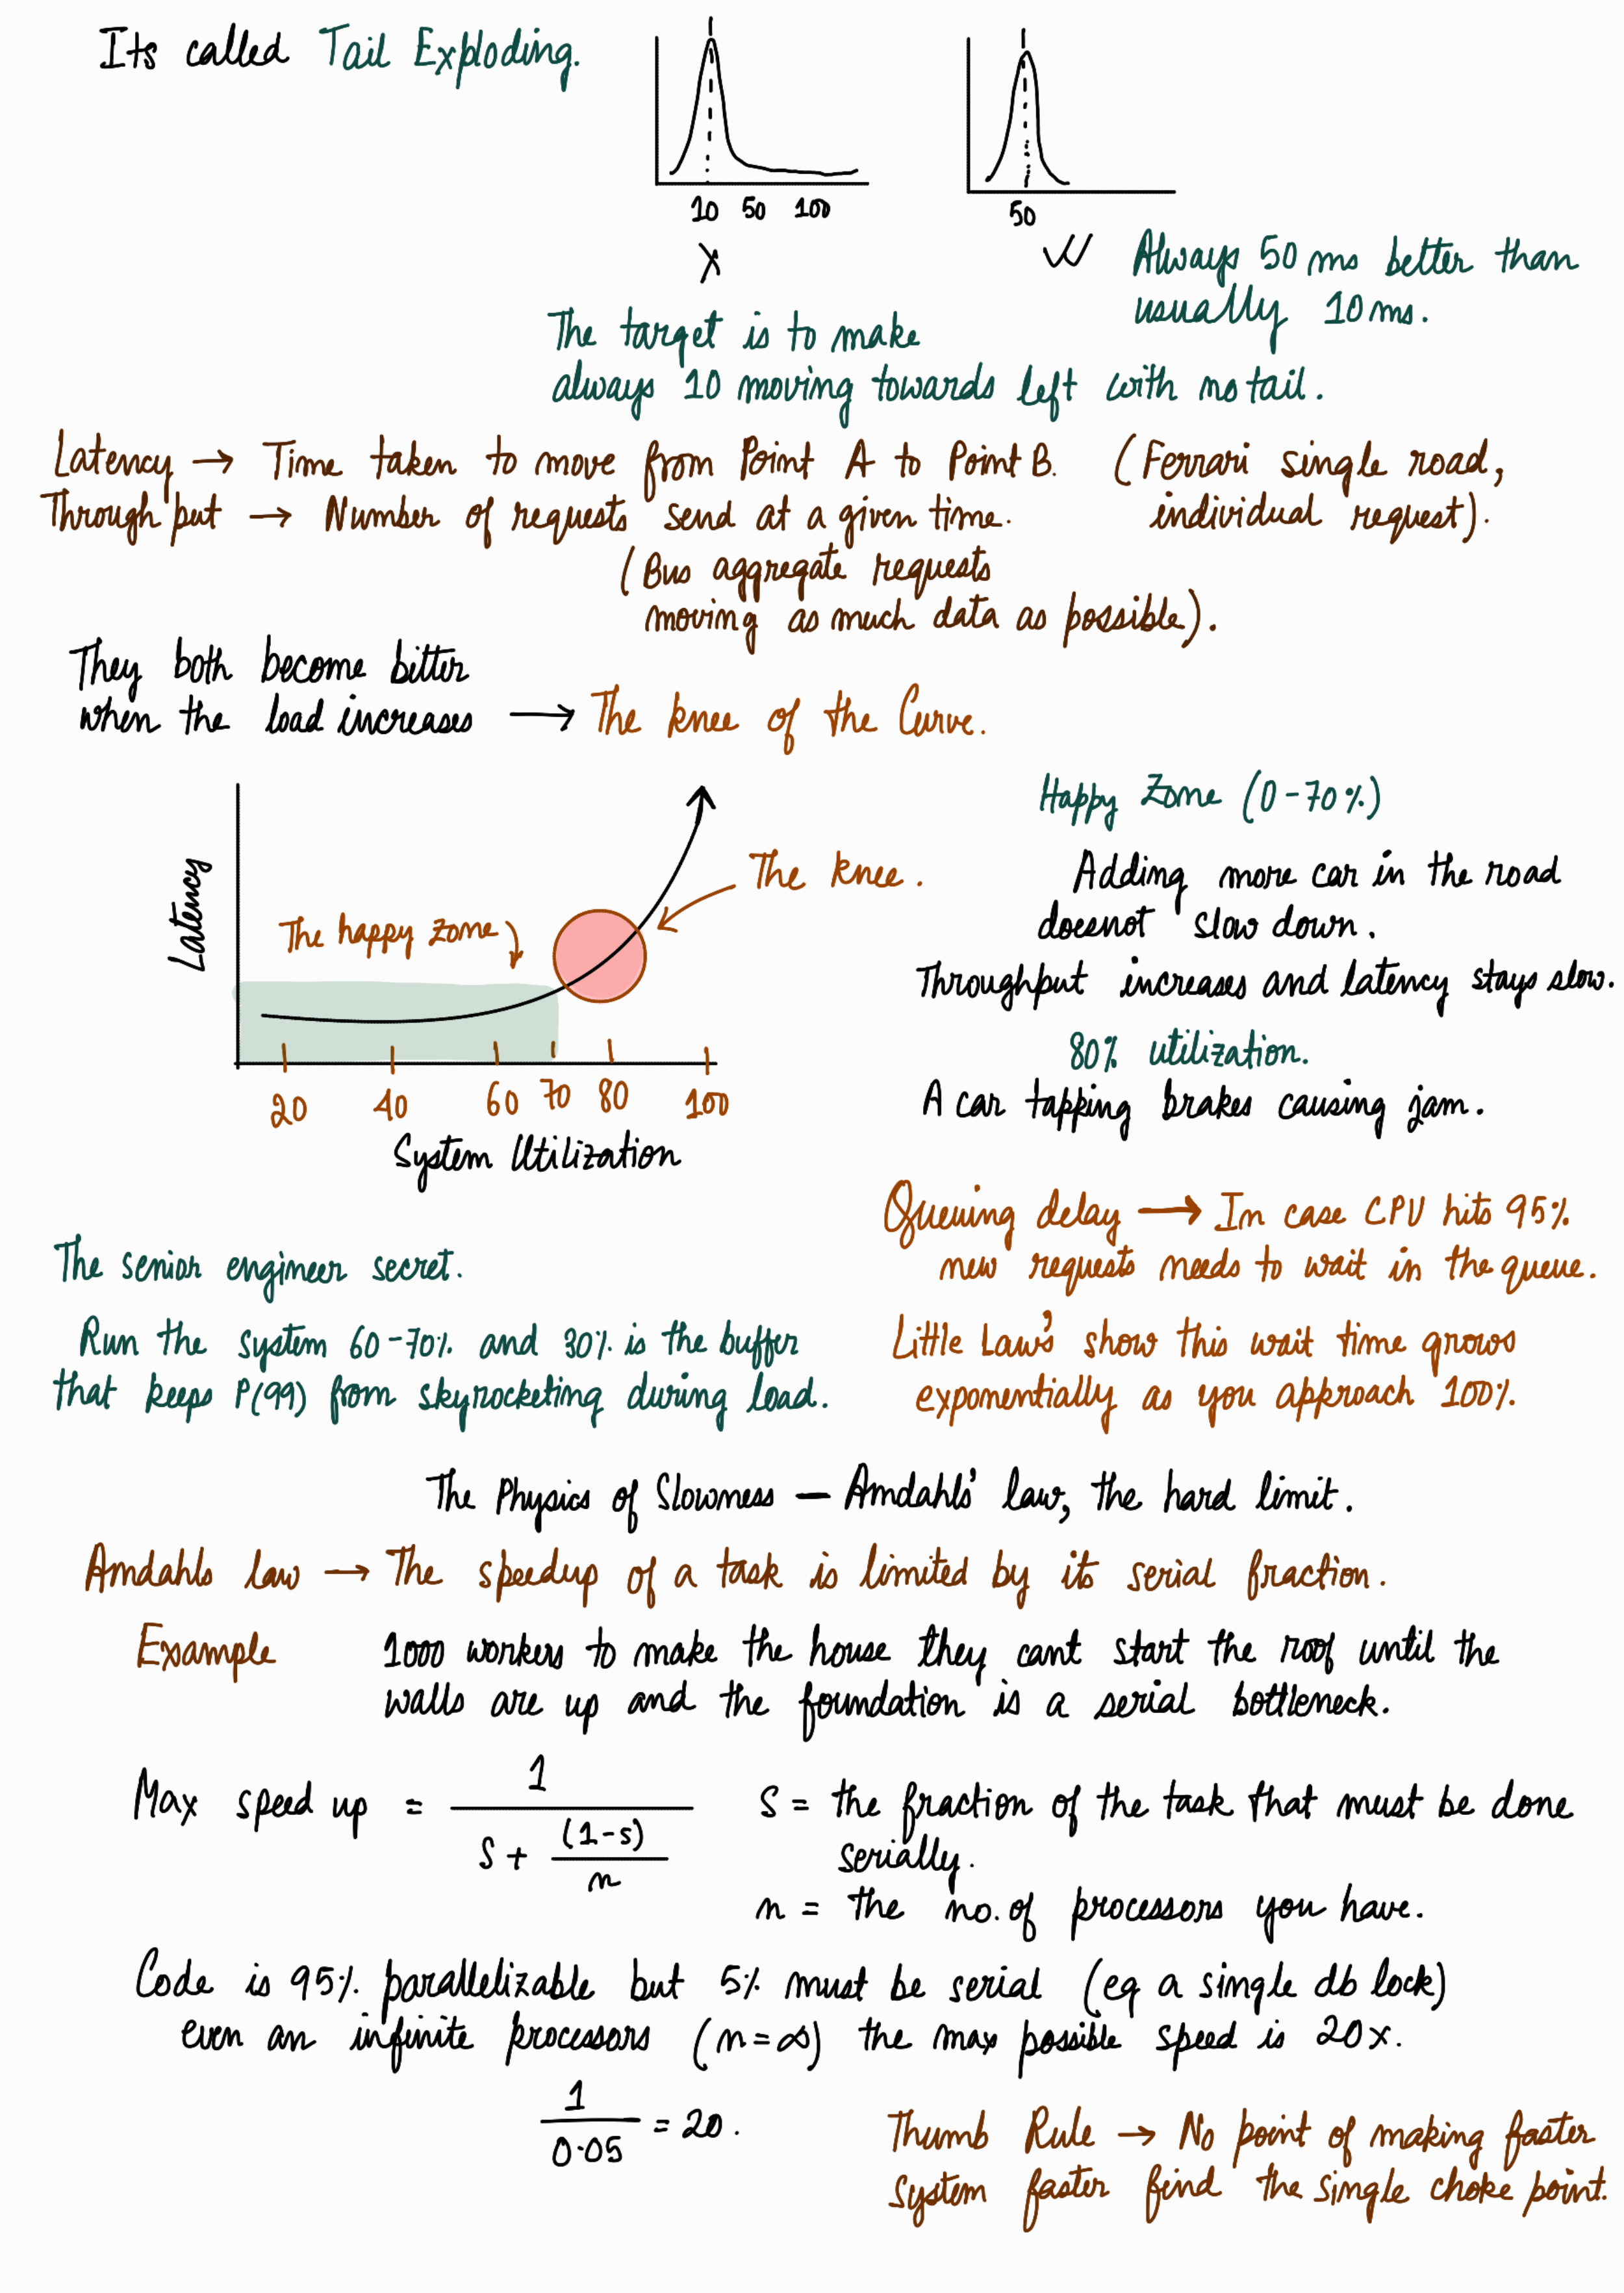 Its called Tail Exploding.
10 50 100
50
X
Always 50 ms better than
usually 10 ms.
The target is to make
always 10 moving towards left with no tail.
Latency → Time taken to move from Point A to Point B. (Ferrari single road,
individual request).
Through put → Number of requests send at a given time.
(Bus aggregate requests
moving as much data as possible).
They both become bitter
when the load increases → The knee of the Curve.
Latency
The happy zone
The knee.
20 40 60 70 80 100
System Utilization
Happy Zone (0-70%)
Adding more car in the road
doesnot slow down.
Throughput increases and latency stays slow.
80% utilization.
A car tapping brakes causing jam.
Queuing delay → In case CPU hits 95%
new requests needs to wait in the queue.
Little Law's show this wait time grows
exponentially as you approach 100%.
The senior engineer secret.
Run the system 60-70% and 30% is the buffer
that keeps P(99) from skyrocketing during load.
The Physics of Slowness – Amdahls' law, the hard limit.
Amdahls law → The speedup of a task is limited by its serial fraction.
Example 1000 workers to make the house they cant start the roof until the
walls are up and the foundation is a serial bottleneck.
Max speed up = 1
S + (1-s)
n
S = the fraction of the task that must be done
serially.
n = the no. of processors you have.
Code is 95% parallelizable but 5% must be serial (eg a single db lock)
even an infinite processors (n=∞) the max possible speed is 20x.
1
0.05 = 20.
Thumb Rule → No point of making faster
system faster find the single choke point.